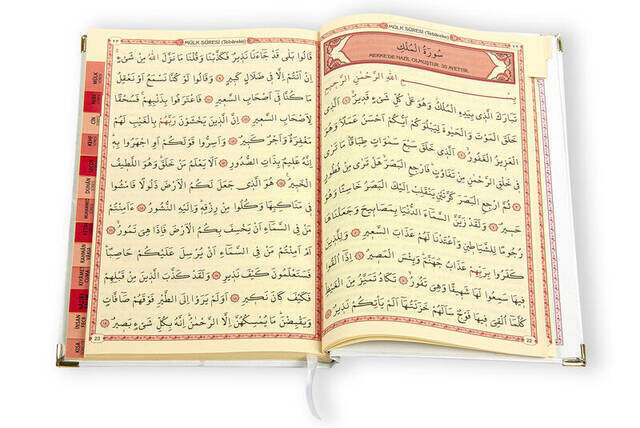 MÜLK SÛRESİ (Tebâreke)
سُورَةُ الْمُلْكِ
MEKKE'DE NAZİL OLMUŞTUR. 30 AYETTİR.
بِسْمِ اللهِ الرَّحْمٰنِ الرَّحِيمِ
تَبَارَكَ الَّذِي بِيَدِهِ الْمُلْكُ وَهُوَ عَلَى كُلِّ شَيْءٍ قَدِيرٌ الَّذِي
خَلَقَ الْمَوْتَ وَالْحَيٰوةَ لِيَبْلُوَكُمْ اَيُّكُمْ اَحْسَنُ عَمَلًا وَهُوَ
الْعَزِيزُ الْغَفُورُ اَلَّذِي خَلَقَ سَبْعَ سَمٰوَاتٍ طِبَاقًا مَا تَرٰى
فِي خَلْقِ الرَّحْمٰنِ مِنْ تَفَاوُتٍ فَارْجِعِ الْبَصَرَ هَلْ تَرٰى مِنْ فُطُورٍ
ثُمَّ ارْجِعِ الْبَصَرَ كَرَّتَيْنِ يَنْقَلِبْ اِلَيْكَ الْبَصَرُ خَاسِئًا وَهُوَ
حَسِيرٌ وَلَقَدْ زَيَّنَّا السَّمَاءَ الدُّنْيَا بِمَصَابِيحَ وَجَعَلْنَاهَا
رُجُومًا لِلشَّيَاطِينِ وَاَعْتَدْنَا لَهُمْ عَذَابَ السَّعِيرِ وَلِلَّذِينَ
كَفَرُوا بِرَبِّهِمْ عَذَابُ جَهَنَّمَ وَبِئْسَ الْمَصِيرُ اِذَا اُلْقُوا
فِيهَا سَمِعُوا لَهَا شَهِيقًا وَهِيَ تَفُورُ تَكَادُ تَمَيَّزُ مِنَ الْغَيْظِ
كُلَّمَا اُلْقِيَ فِيهَا فَوْجٌ سَاَلَهُمْ خَزَنَتُهَا اَلَمْ يَأْتِكُمْ نَذِيرٌ
22
MÜLK SÛRESİ (Tebâreke)
قَالُوا بَلٰى قَدْ جَاءَنَا نَذِيرٌ فَكَذَّبْنَا وَقُلْنَا مَا نَزَّلَ اللهُ مِنْ شَيْءٍ
اِنْ اَنْتُمْ اِلَّا فِي ضَلَالٍ كَبِيرٍ وَقَالُوا لَوْ كُنَّا نَسْمَعُ اَوْ نَعْقِلُ
مَا كُنَّا فِي اَصْحَابِ السَّعِيرِ فَاعْتَرَفُوا بِذَنْبِهِمْ فَسُحْقًا
لِاَصْحَابِ السَّعِيرِ اِنَّ الَّذِينَ يَخْشَوْنَ رَبَّهُمْ بِالْغَيْبِ لَهُمْ
مَغْفِرَةٌ وَاَجْرٌ كَبِيرٌ وَاَسِرُّوا قَوْلَكُمْ اَوِ اجْهَرُوا بِهِ
اِنَّهُ عَلِيمٌ بِذَاتِ الصُّدُورِ اَلَا يَعْلَمُ مَنْ خَلَقَ وَهُوَ اللَّطِيفُ
الْخَبِيرُ هُوَ الَّذِي جَعَلَ لَكُمُ الْاَرْضَ ذَلُولًا فَامْشُوا
فِي مَنَاكِبِهَا وَكُلُوا مِنْ رِزْقِهِ وَاِلَيْهِ النُّشُورُ ءَاَمِنْتُمْ
مَنْ فِي السَّمَاءِ اَنْ يَخْسِفَ بِكُمُ الْاَرْضَ فَاِذَا هِيَ تَمُورُ
اَمْ اَمِنْتُمْ مَنْ فِي السَّمَاءِ اَنْ يُرْسِلَ عَلَيْكُمْ حَاصِبًا
فَسَتَعْلَمُونَ كَيْفَ نَذِيرِ وَلَقَدْ كَذَّبَ الَّذِينَ مِنْ قَبْلِهِمْ
فَكَيْفَ كَانَ نَكِيرِ اَوَلَمْ يَرَوْا اِلَى الطَّيْرِ فَوْقَهُمْ صَافَّاتٍ
وَيَقْبِضْنَ مَا يُمْسِكُهُنَّ اِلَّا الرَّحْمٰنُ اِنَّهُ بِكُلِّ شَيْءٍ بَصِيرٌ
23
MÜLK
CİN
KEHF
DUHÂN
FETİH
RAHMÂN
VÂKIA
KIYÂMET
CUMA
İNSAN
FECR
KISA